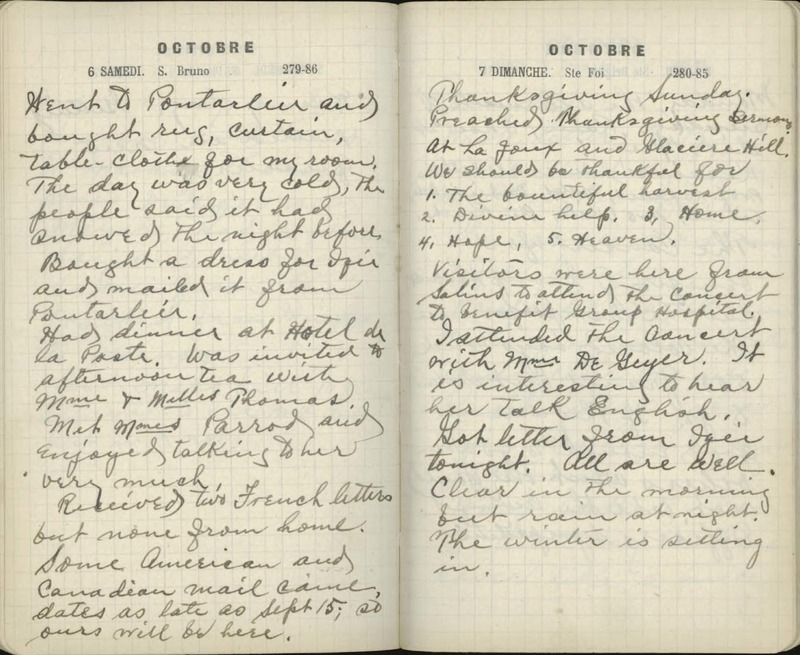 OCTOBRE
6 SAMEDI. S. Bruno 279-86
Went to Pontarlier and
bought rug, curtain,
table-clothe for my room.
The day was very cold, the
people said it had
snowed the night before.
Bought a dress for Ijer
and mailed it from
Pontarlier.
Had dinner at Hotel de
la Poste. Was invited to
afternoon tea with
Mme & Milles Thomas.
Met Mmes Parrod and
enjoyed talking to her
very much.
Received two French letters
but none from home.
Some American and
Canadian mail came,
dates as late as Sept 15; so
ours will be here.
OCTOBRE
7 DIMANCHE. Ste Foi 280-85
Thanksgiving Sunday.
Preached Thanksgiving Sermons
at La Joux and Glaciere Hill.
We should be thankful for
1. The bountiful harvest
2. Divine help. 3, Home.
4. Hope, 5. Heaven.
Visitors were here from
Salins to attend the Concert
to benefit Group Hospital.
I attended the Concert
with Mme De Geyer. It
is interesting to hear
her talk English.
Got letter from Ijer
tonight. All are well.
Clear in the morning
but rain at night.
The winter is setting
in.